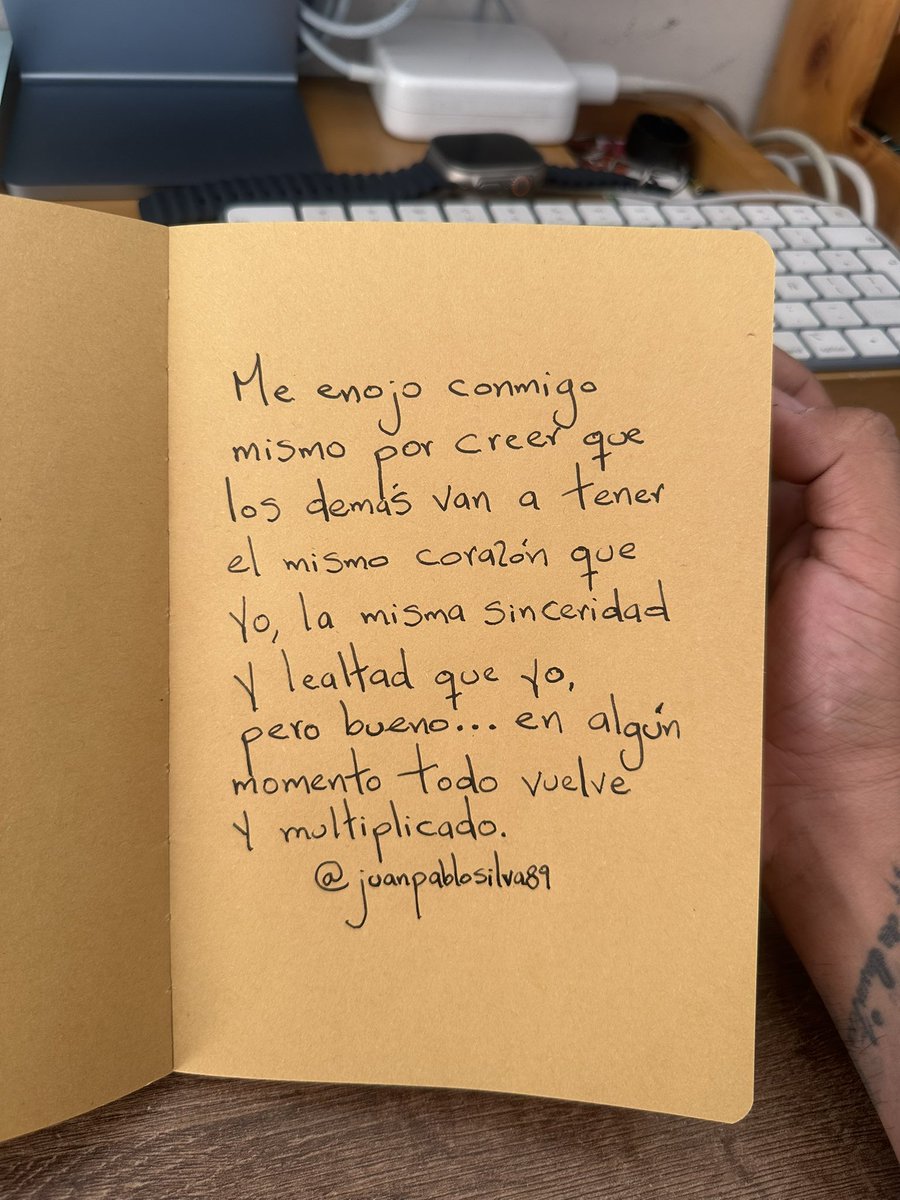 Me enojo conmigo
mismo por creer que
los demás van a tener
el mismo corazón que
yo, la misma sinceridad
y lealtad que yo,
pero bueno... en algún
momento todo vuelve
y multiplicado.
@juanpablosilva89